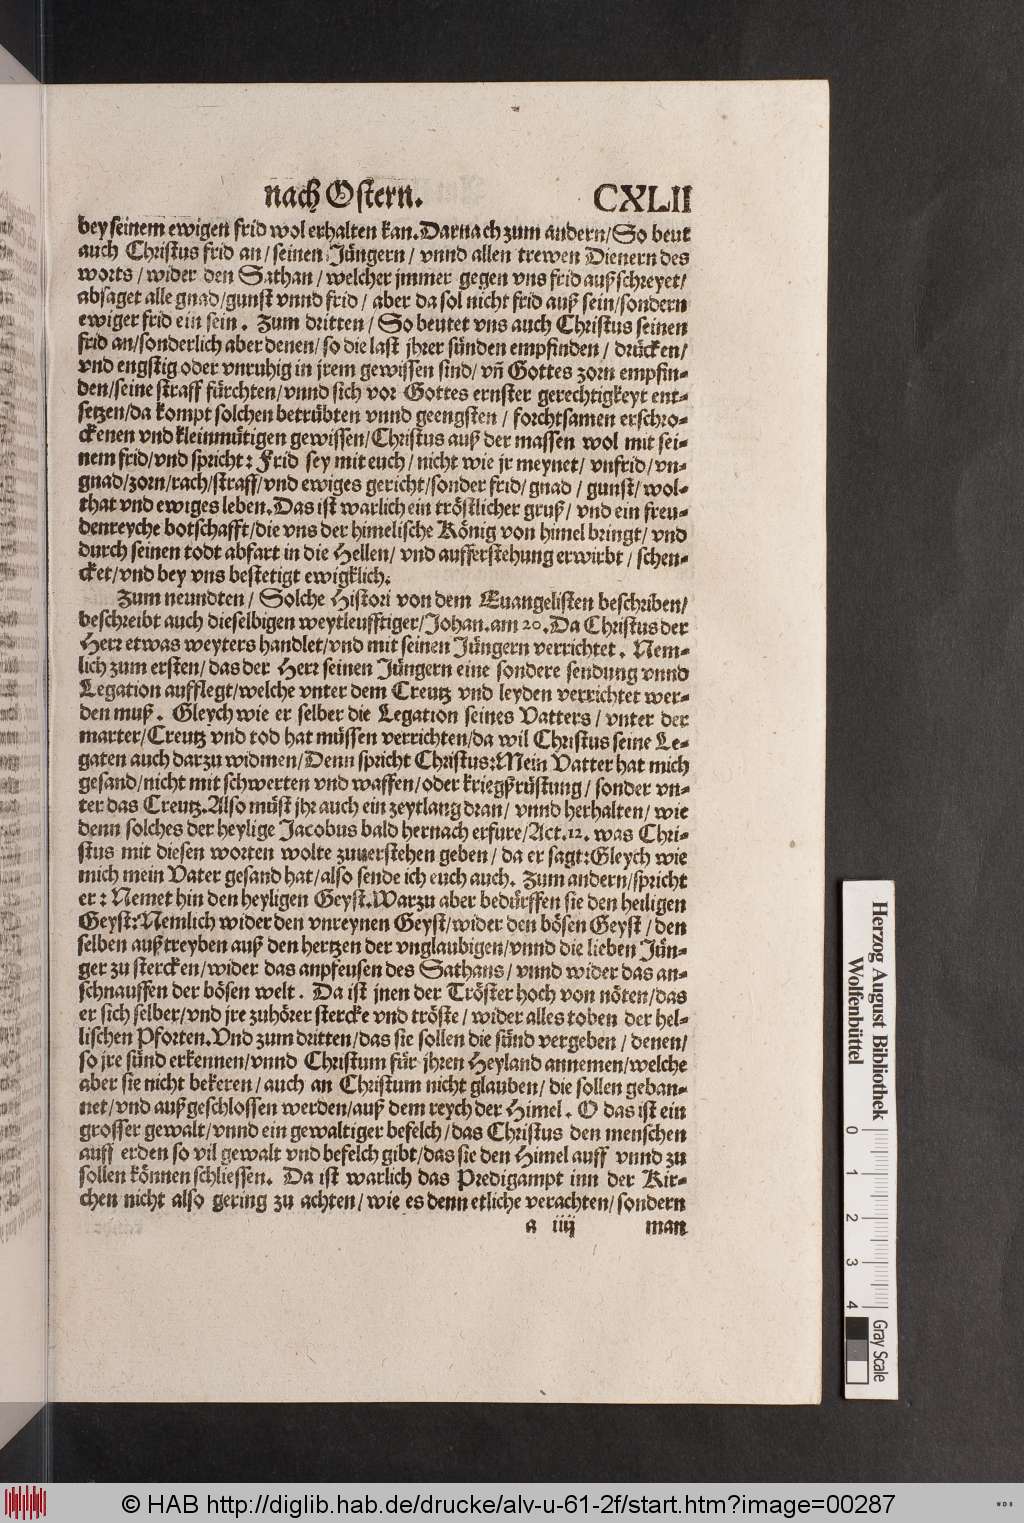 nach Ostern. CXLII
bey seinem ewigen frid wol erhalten kan. Darnach zum andern/ So beut
auch Christus frid an/ seinen Jüngern/ vnnd allen trewen Dienern des
worts/ wider den Sathan/ welcher jmmer gegen vns frid außschreyet/
absaget alle gnad/ gunst vnnd frid/ aber da sol nicht frid auß sein/ sondern
ewiger frid ein sein. Zum dritten/ So beutet vns auch Christus seinen
frid an/ sonderlich aber denen/ so die last jhrer sünden empfinden/ drücken/
vnd engstig oder vnruhig in jrem gewissen sind/ vn̄ Gottes zorn empfin⸗
den/ seine straff fürchten/ vnnd sich vor Gottes ernster gerechtigkeyt ent⸗
setzen/ da kompt solchen betrübten vnnd geengsten/ forchtsamen erschro⸗
ckenen vnd kleinmütigen gewissen/ Christus auß der massen wol mit sei⸗
nem frid/ vnd spricht: Frid sey mit euch/ nicht wie jr meynet/ vnfrid/ vn⸗
gnad/ zorn/ rach/ straff/ vnd ewiges gericht/ sonder frid/ gnad/ gunst/ wol⸗
that vnd ewiges leben. Das ist warlich ein tröstlicher gruß/ vnd ein freu⸗
denreyche botschafft/ die vns der himelische König von himel bringt/ vnd
durch seinen todt abfart in die Hellen/ vnd aufferstehung erwirbt/ schen⸗
cket/ vnd bey vns bestetigt ewigklich.
Zum neundten/ Solche Histori von dem Euangelisten beschriben/
beschreibt auch dieselbigen weytleufftiger/ Johan. am 20. Da Christus der
Herr etwas weyters handlet/ vnd mit seinen Jüngern verrichtet. Nem⸗
lich zum ersten/ das der Herr seinen Jüngern eine sondere sendung vnnd
Legation aufflegt/ welche vnter dem Creutz vnd leyden verrichtet wer⸗
den muß. Gleych wie er selber die Legation seines Vatters/ vnter der
marter/ Creutz vnd tod hat müssen verrichten/ da wil Christus seine Le⸗
gaten auch darzu widmen/ Denn spricht Christus: Mein Vatter hat mich
gesand/ nicht mit schwerten vnd waffen/ oder kriegßrüstung/ sonder vn⸗
ter das Creutz. Also müst jhr auch ein zeytlang dran/ vnnd herhalten/ wie
denn solches der heylige Jacobus bald hernach erfure/ Act. 12. was Chri⸗
stus mit diesen worten wolte zuuerstehen geben/ da er sagt: Gleych wie
mich mein Vater gesand hat/ also sende ich euch auch. Zum andern/ spricht
er: Nemet hin den heyligen Geyst. Warzu aber bedürffen sie den heiligen
Geyst: Nemlich wider den vnreynen Geyst/ wider den bösen Geyst/ den
selben außtreyben auß den hertzen der vnglaubigen/ vnnd die lieben Jün⸗
ger zu stercken/ wider das anpfeusen des Sathans/ vnnd wider das an⸗
schnauffen der bösen welt. Da ist jnen der Tröster hoch von nöten/ das
er sich selber/ vnd jre zuhörer stercke vnd tröste/ wider alles toben der hel⸗
lischen Pforten. Vnd zum dritten/ das sie sollen die sünd vergeben/ denen/
so jre sünd erkennen/ vnnd Christum für jhren Heyland annemen/ welche
aber sie nicht bekeren/ auch an Christum nicht glauben/ die sollen geban⸗
net/ vnd außgeschlossen werden/ auß dem reych der Himel. O das ist ein
grosser gewalt/ vnnd ein gewaltiger befelch/ das Christus den menschen
auff erden so vil gewalt vnd befelch gibt/ das sie den Himel auff vnnd zu
sollen können schliessen. Da ist warlich das Predigampt inn der Kir⸗
chen nicht also gering zu achten/ wie es denn etliche verachten/ sondern
a iiij man
Herzog August Bibliothek
Wolfenbüttel
0 1 2 3 4
Gray Scale
© HAB http://diglib.hab.de/drucke/alv-u-61-2f/start.htm?image=00287